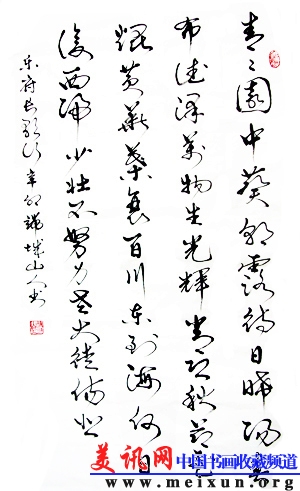 青〻園中葵朝露待日晞陽春
布德澤萬物生光輝常恐秋節至
焜黄華葉衰百川東到海何日
復西歸少壯不努力老大徒傷悲
乐府長歌行辛卯城山人书
美讯网 中国书画收藏频道
www.meixun.org